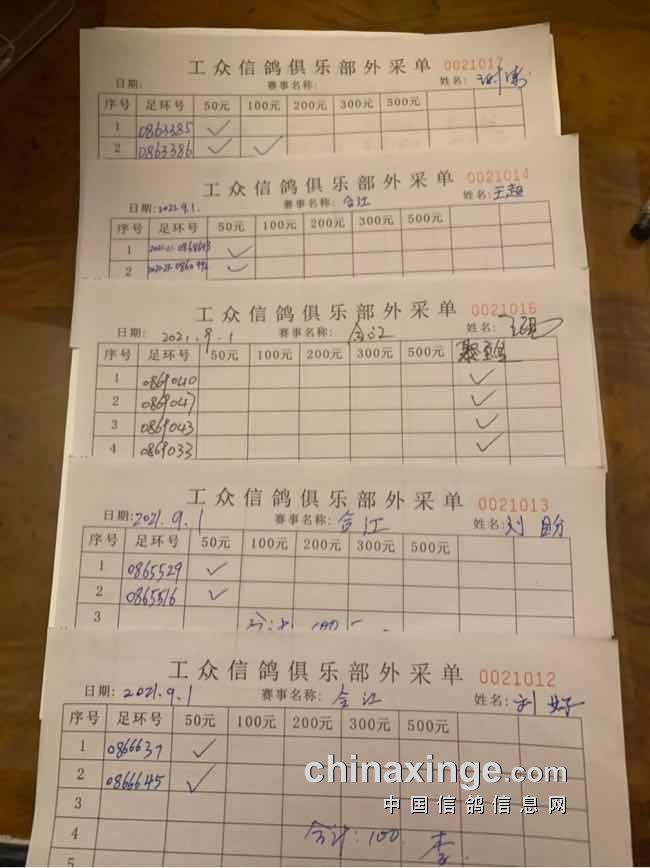 工众信鸽俱乐部外采单 0021017
日期: 赛事名称: 姓名:
序号 足环号 50元 100元 200元 300元 500元
1 0863385 ✓
2 0863386 ✓ ✓
工众信鸽俱乐部外采单 0021014
日期:2021.9.1. 赛事名称:合江 姓名:王超
序号 足环号 50元 100元 200元 300元 500元
1 ✓
2 ✓
工众信鸽俱乐部外采单 0021016
日期: 2021.9.1 赛事名称: 合江 姓名:
序号 足环号 50元 100元 200元 300元 500元
1 0869040 ✓
2 0869047 ✓
3 0869043 ✓
4 0869033 ✓
工众信鸽俱乐部外采单 0021013
日期:2021.9.1 赛事名称: 合江 姓名:刘
序号 足环号 50元 100元 200元 300元 500元
1 0865529 ✓
2 0865516 ✓
3
工众信鸽俱乐部外采单 0021012
日期: 2021.9.1 赛事名称: 合江 姓名:刘好
序号 足环号 50元 100元 200元 300元 500元
1 0866637 ✓
2 0866645 ✓
3
4 合计:100 李
5
chinaxinge.com
中国信鸽信息网